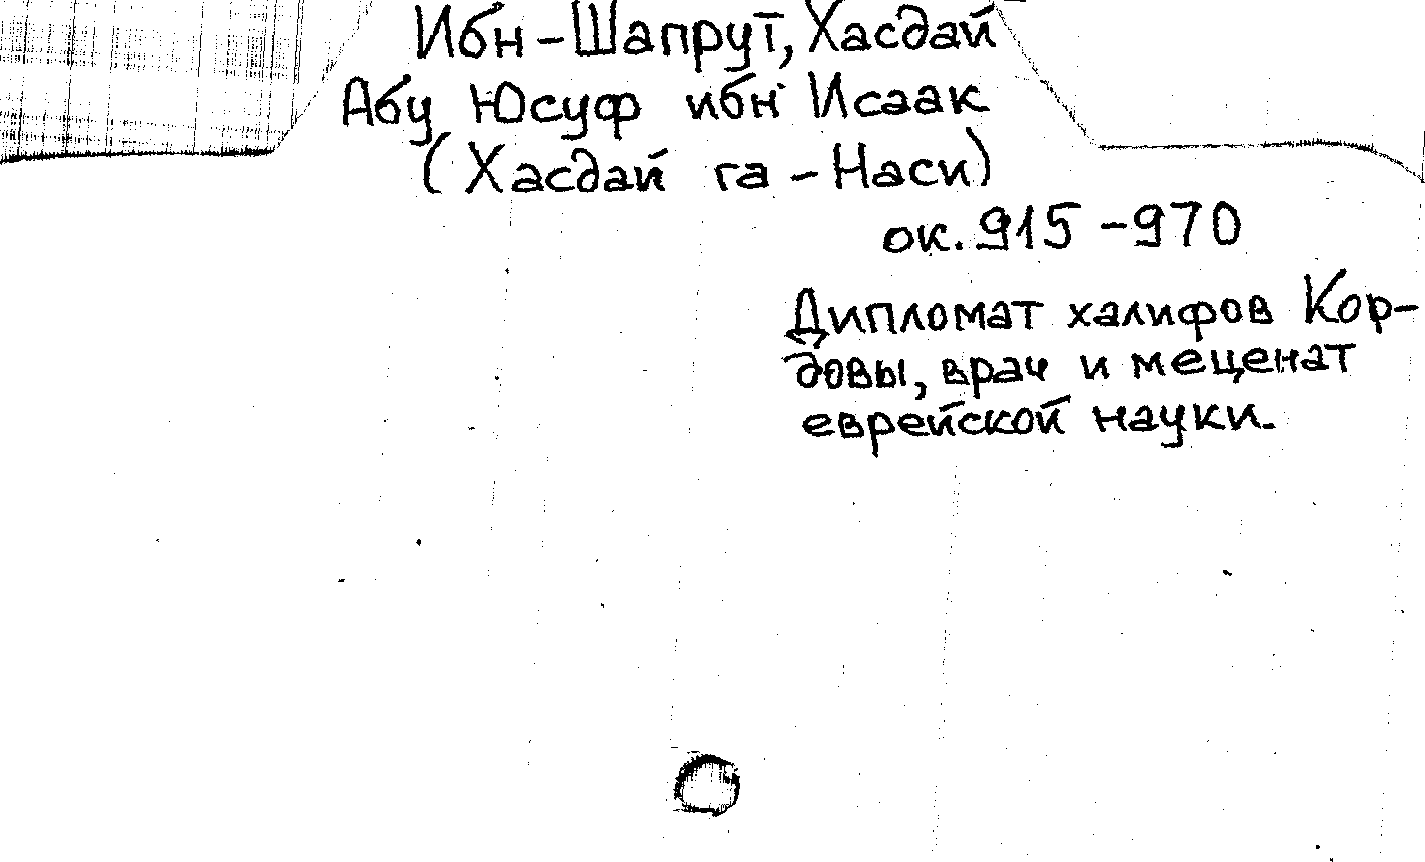 Ибн-Шапрут, Хасдай
Абу Юсуф ибн Исаак
(Хасдай га-Наси)
ок. 915-970
Дипломат халифов Кор-
довы, врач и меценат
еврейской науки.